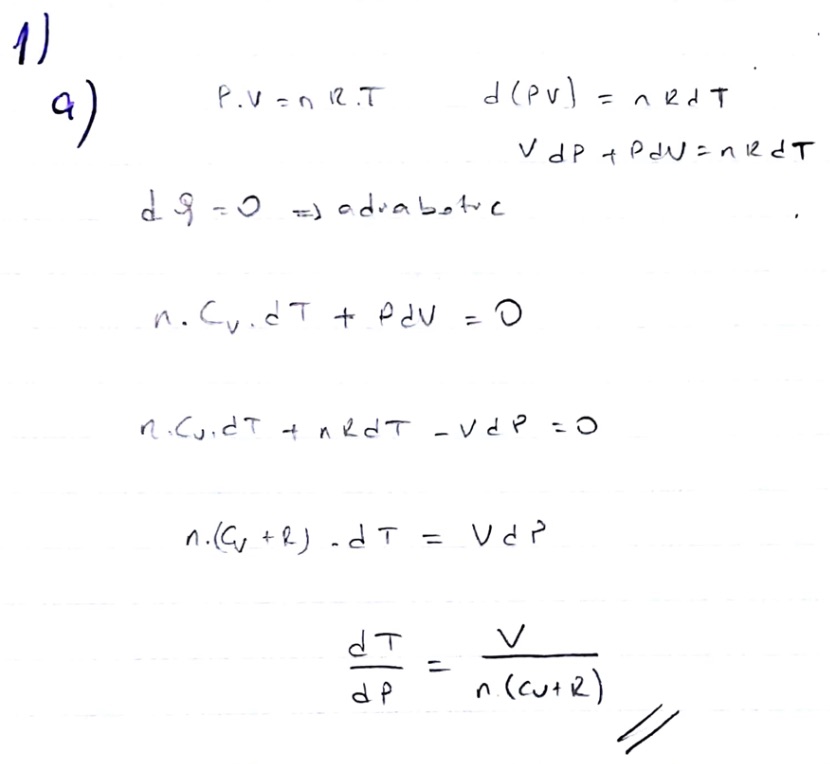 1)
a) P.V = n R.T d(PV) = n R d T
V dP + P dV = n R d T
d Q = 0 => adiabatic
n. Cv. dT + P dV = 0
n. Cv. dT + n R dT - V d P = 0
n. (Cv + R) . d T = V d P
dT / dP = V / n. (Cv + R) //